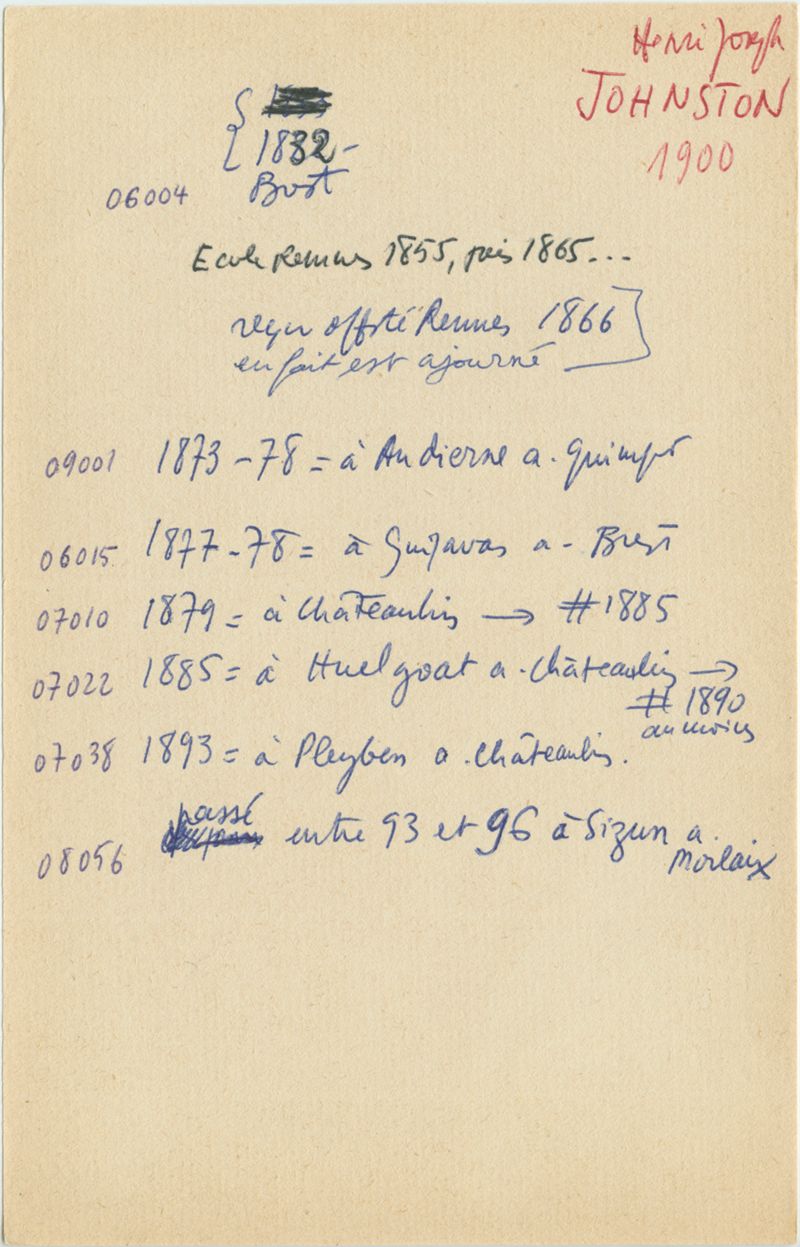 Henri Joseph
JOHNSTON
1900
1832 -
06004 Brest
Ecole Rennes 1855, puis 1865...
reçu offté Rennes 1866
en fait est ajourné
09001 1873-78 = à Audierne a. Quimper
06015 1877-78 = à Guipavas a. Brest
07010 1879 = à Châteaulin → # 1885
07022 1885 = à Huelgoat a. Châteaulin →
# 1890
au moins
07038 1893 = à Pleyben a. Châteaulin.
passé
08056 entre 93 et 96 à Sizun a.
Morlaix